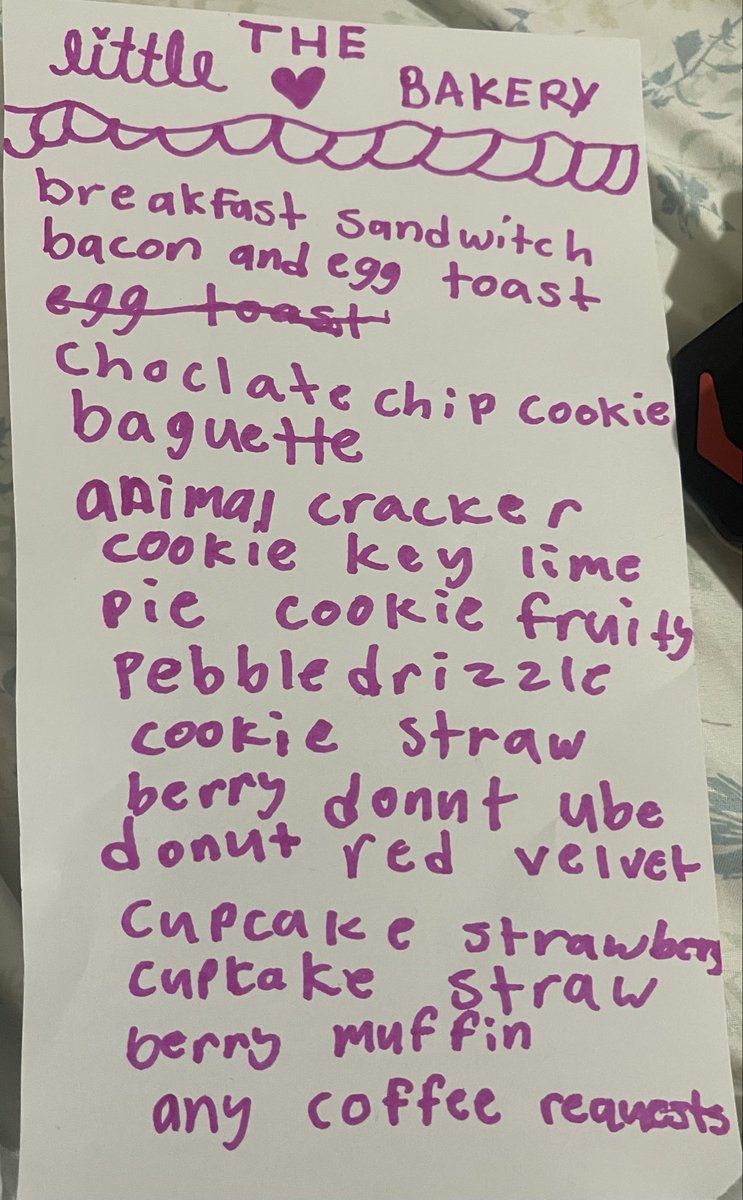 THE
little ♥ BAKERY
breakfast sandwitch
bacon and egg toast
egg toast
choclate chip cookie
baguette
animal cracker
cookie key lime
pie cookie fruity
pebble drizzle
cookie straw
berry donut ube
donut red velvet
cupcake strawberry
cupcake straw
berry muffin
any coffee requests